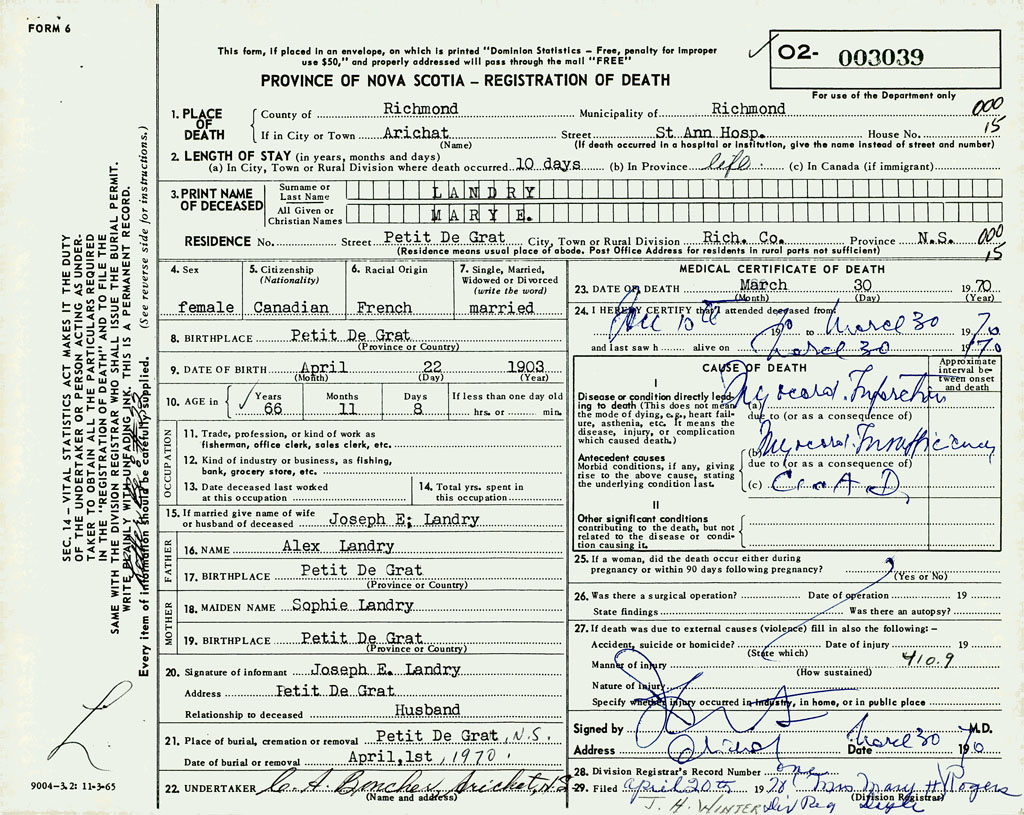 FORM 6
This form, if placed in an envelope, on which is printed "Dominion Statistics – Free, penalty for improper
use $50," and properly addressed will pass through the mail "FREE"
PROVINCE OF NOVA SCOTIA – REGISTRATION OF DEATH
02- 003039
For use of the Department only
1. PLACE OF DEATH
County of Richmond Municipality of Richmond 000
If in City or Town Arichat Street St Ann Hosp. House No. 15
(Name) (If death occurred in a hospital or institution, give the name instead of street and number)
2. LENGTH OF STAY (in years, months and days)
(a) In City, Town or Rural Division where death occurred 10 days (b) In Province life. (c) In Canada (if immigrant)
3. PRINT NAME OF DECEASED
Surname or Last Name LANDRY
All Given or Christian Names MARY E.
RESIDENCE No. Street Petit De Grat City, Town or Rural Division Rich. Co. Province N.S. 000
(Residence means usual place of abode. Post Office Address for residents in rural parts not sufficient) 15
4. Sex
female
5. Citizenship
(Nationality)
Canadian
6. Racial Origin
French
7. Single, Married,
Widowed or Divorced
(write the word)
married
8. BIRTHPLACE Petit De Grat
(Province or Country)
9. DATE OF BIRTH April 22 1903
(Month) (Day) (Year)
10. AGE in Years Months Days If less than one day old
66 11 8 hrs. or min.
OCCUPATION
11. Trade, profession, or kind of work as
fisherman, office clerk, sales clerk, etc.
12. Kind of industry or business, as fishing,
bank, grocery store, etc.
13. Date deceased last worked
at this occupation
14. Total yrs. spent in
this occupation
15. If married give name of wife
or husband of deceased Joseph E. Landry
FATHER
16. NAME Alex Landry
17. BIRTHPLACE Petit De Grat
(Province or Country)
MOTHER
18. MAIDEN NAME Sophie Landry
19. BIRTHPLACE Petit De Grat
(Province or Country)
20. Signature of informant Joseph E. Landry
Address Petit De Grat
Relationship to deceased Husband
21. Place of burial, cremation or removal Petit De Grat, N.S.
Date of burial or removal April, 1st, 1970.
22. UNDERTAKER C. A. Boucher, Arichat, N.S
(Name and address)
MEDICAL CERTIFICATE OF DEATH
23. DATE OF DEATH March 30 1970
(Month) (Day) (Year)
24. I HEREBY CERTIFY that I attended deceased from
19 70 to March 30 1970
and last saw h alive on March 30 1970
CAUSE OF DEATH
Approximate
interval between onset
and death
I
Disease or condition directly leading to death (This does not mean
the mode of dying, e.g., heart failure, asthenia, etc. It means the
disease, injury, or complication
which caused death.)
(a) Myocard. Infarction
due to (or as a consequence of)
(b) Myocard. Insufficiency
due to (or as a consequence of)
(c)
Antecedent causes
Morbid conditions, if any, giving
rise to the above cause, stating
the underlying condition last.
II
Other significant conditions
contributing to the death, but not
related to the disease or condition causing it.
25. If a woman, did the death occur either during
pregnancy or within 90 days following pregnancy?
(Yes or No)
26. Was there a surgical operation? Date of operation 19
State findings Was there an autopsy?
27. If death was due to external causes (violence) fill in also the following: –
Accident, suicide or homicide? Date of injury 19
(State which)
Manner of injury 410.9
(How sustained)
Nature of injury
Specify whether injury occurred in industry, in home, or in public place
Signed by M.D.
Address Arichat Date March 30 1970
28. Division Registrar's Record Number
29. Filed April 20th 1970 Mrs Mary H Rogers
(Division Registrar)
J. H. WINTER Div Reg
SEC. 14 – VITAL STATISTICS ACT MAKES IT THE DUTY
OF THE UNDERTAKER OR PERSON ACTING AS UNDERTAKER TO OBTAIN ALL THE PARTICULARS REQUIRED
IN THE "REGISTRATION OF DEATH" AND TO FILE THE
SAME WITH THE DIVISION REGISTRAR WHO SHALL ISSUE THE BURIAL PERMIT.
WRITE PLAINLY WITH UNFADING INK. THIS IS A PERMANENT RECORD.
Every item of information should be carefully supplied. (See reverse side for instructions.)
9004-3.2: 11-3-65